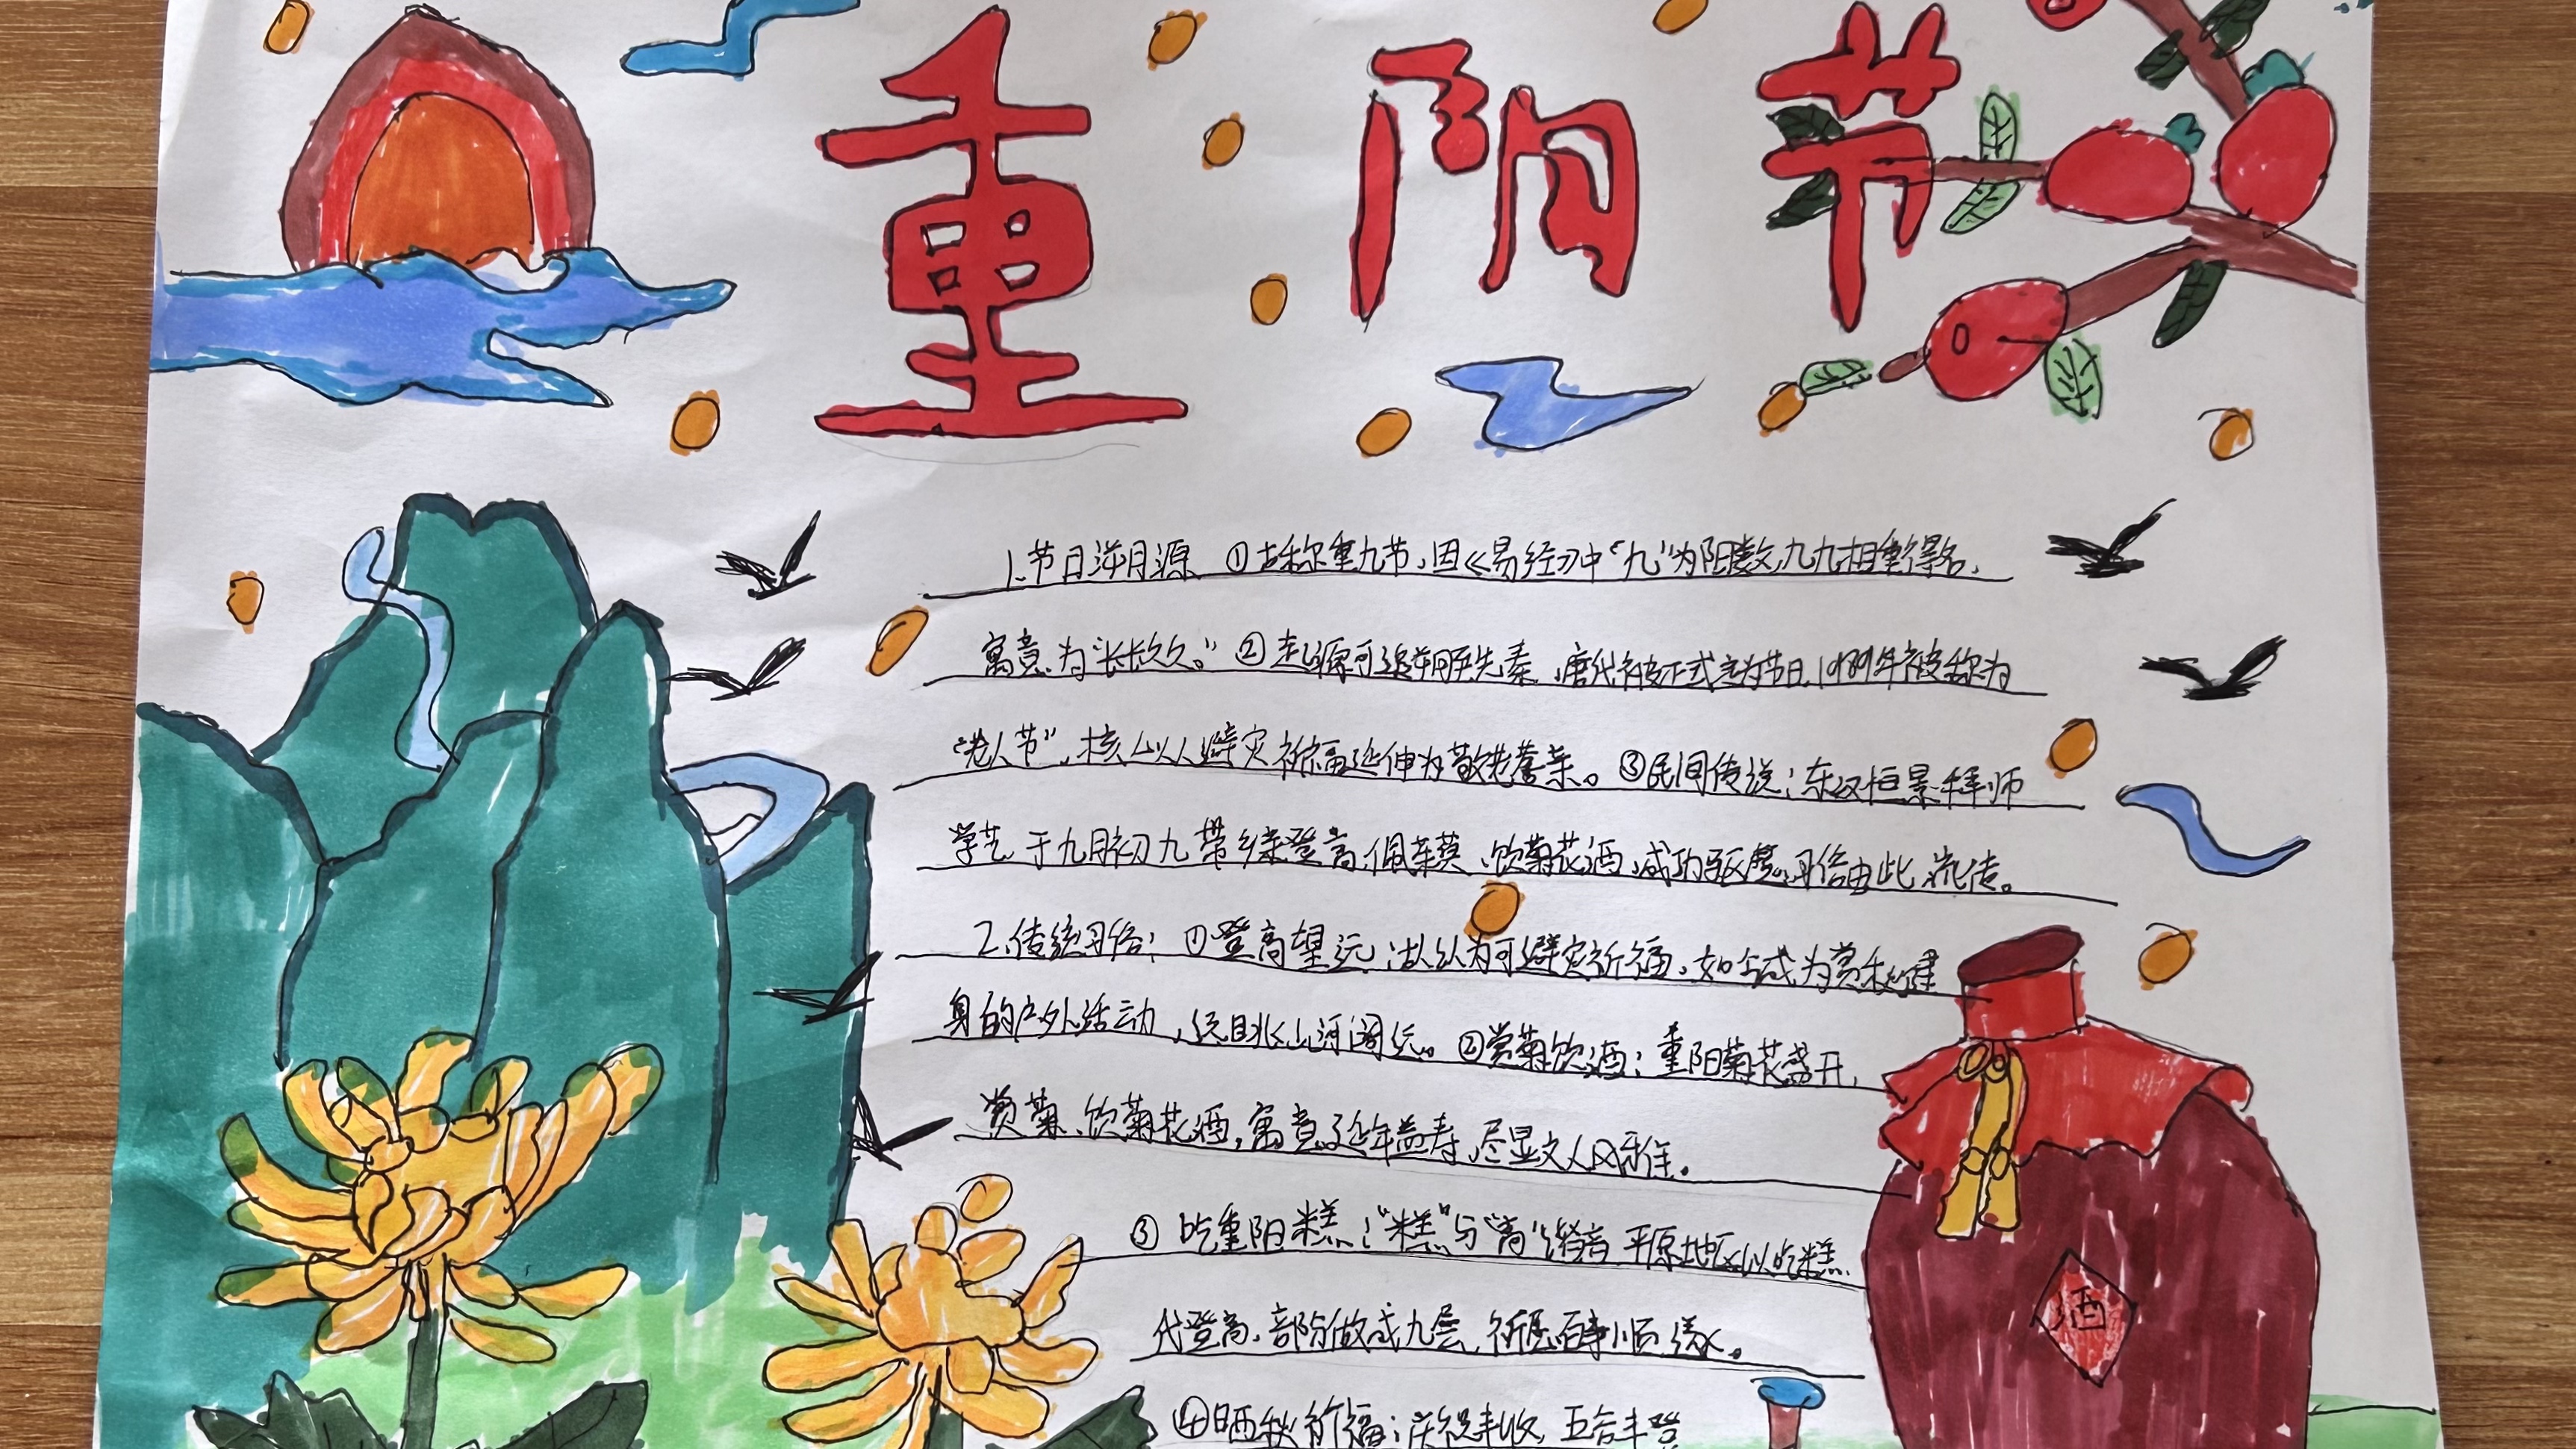 重阳节
1.节日溯源 ①古称重九节,因《易经》中“九”为阳数,九九相重得名,
寓意为“长长久久。” ②起源可追溯至先秦,唐代被正式定为节日,1989年被称为
“老人节”,核心从避灾祈福延伸为敬老养亲。③民间传说:东汉恒景拜师
学艺,于九月初九带乡亲登高、佩茱萸、饮菊花酒,成功驱魔,习俗由此流传。
2.传统习俗:①登高望远:古人认为可避灾祈福,如今成为赏秋健
身的户外活动,远眺山河阔远。②赏菊饮酒:重阳菊花盛开,
赏菊、饮菊花酒,寓意延年益寿,尽显文人风雅。
③ 吃重阳糕:“糕”与“高”谐音,平原地区以吃糕
代登高,部份做成九层,祈愿百事顺遂。
④晒秋祈福:庆祝丰收,五谷丰登
酒